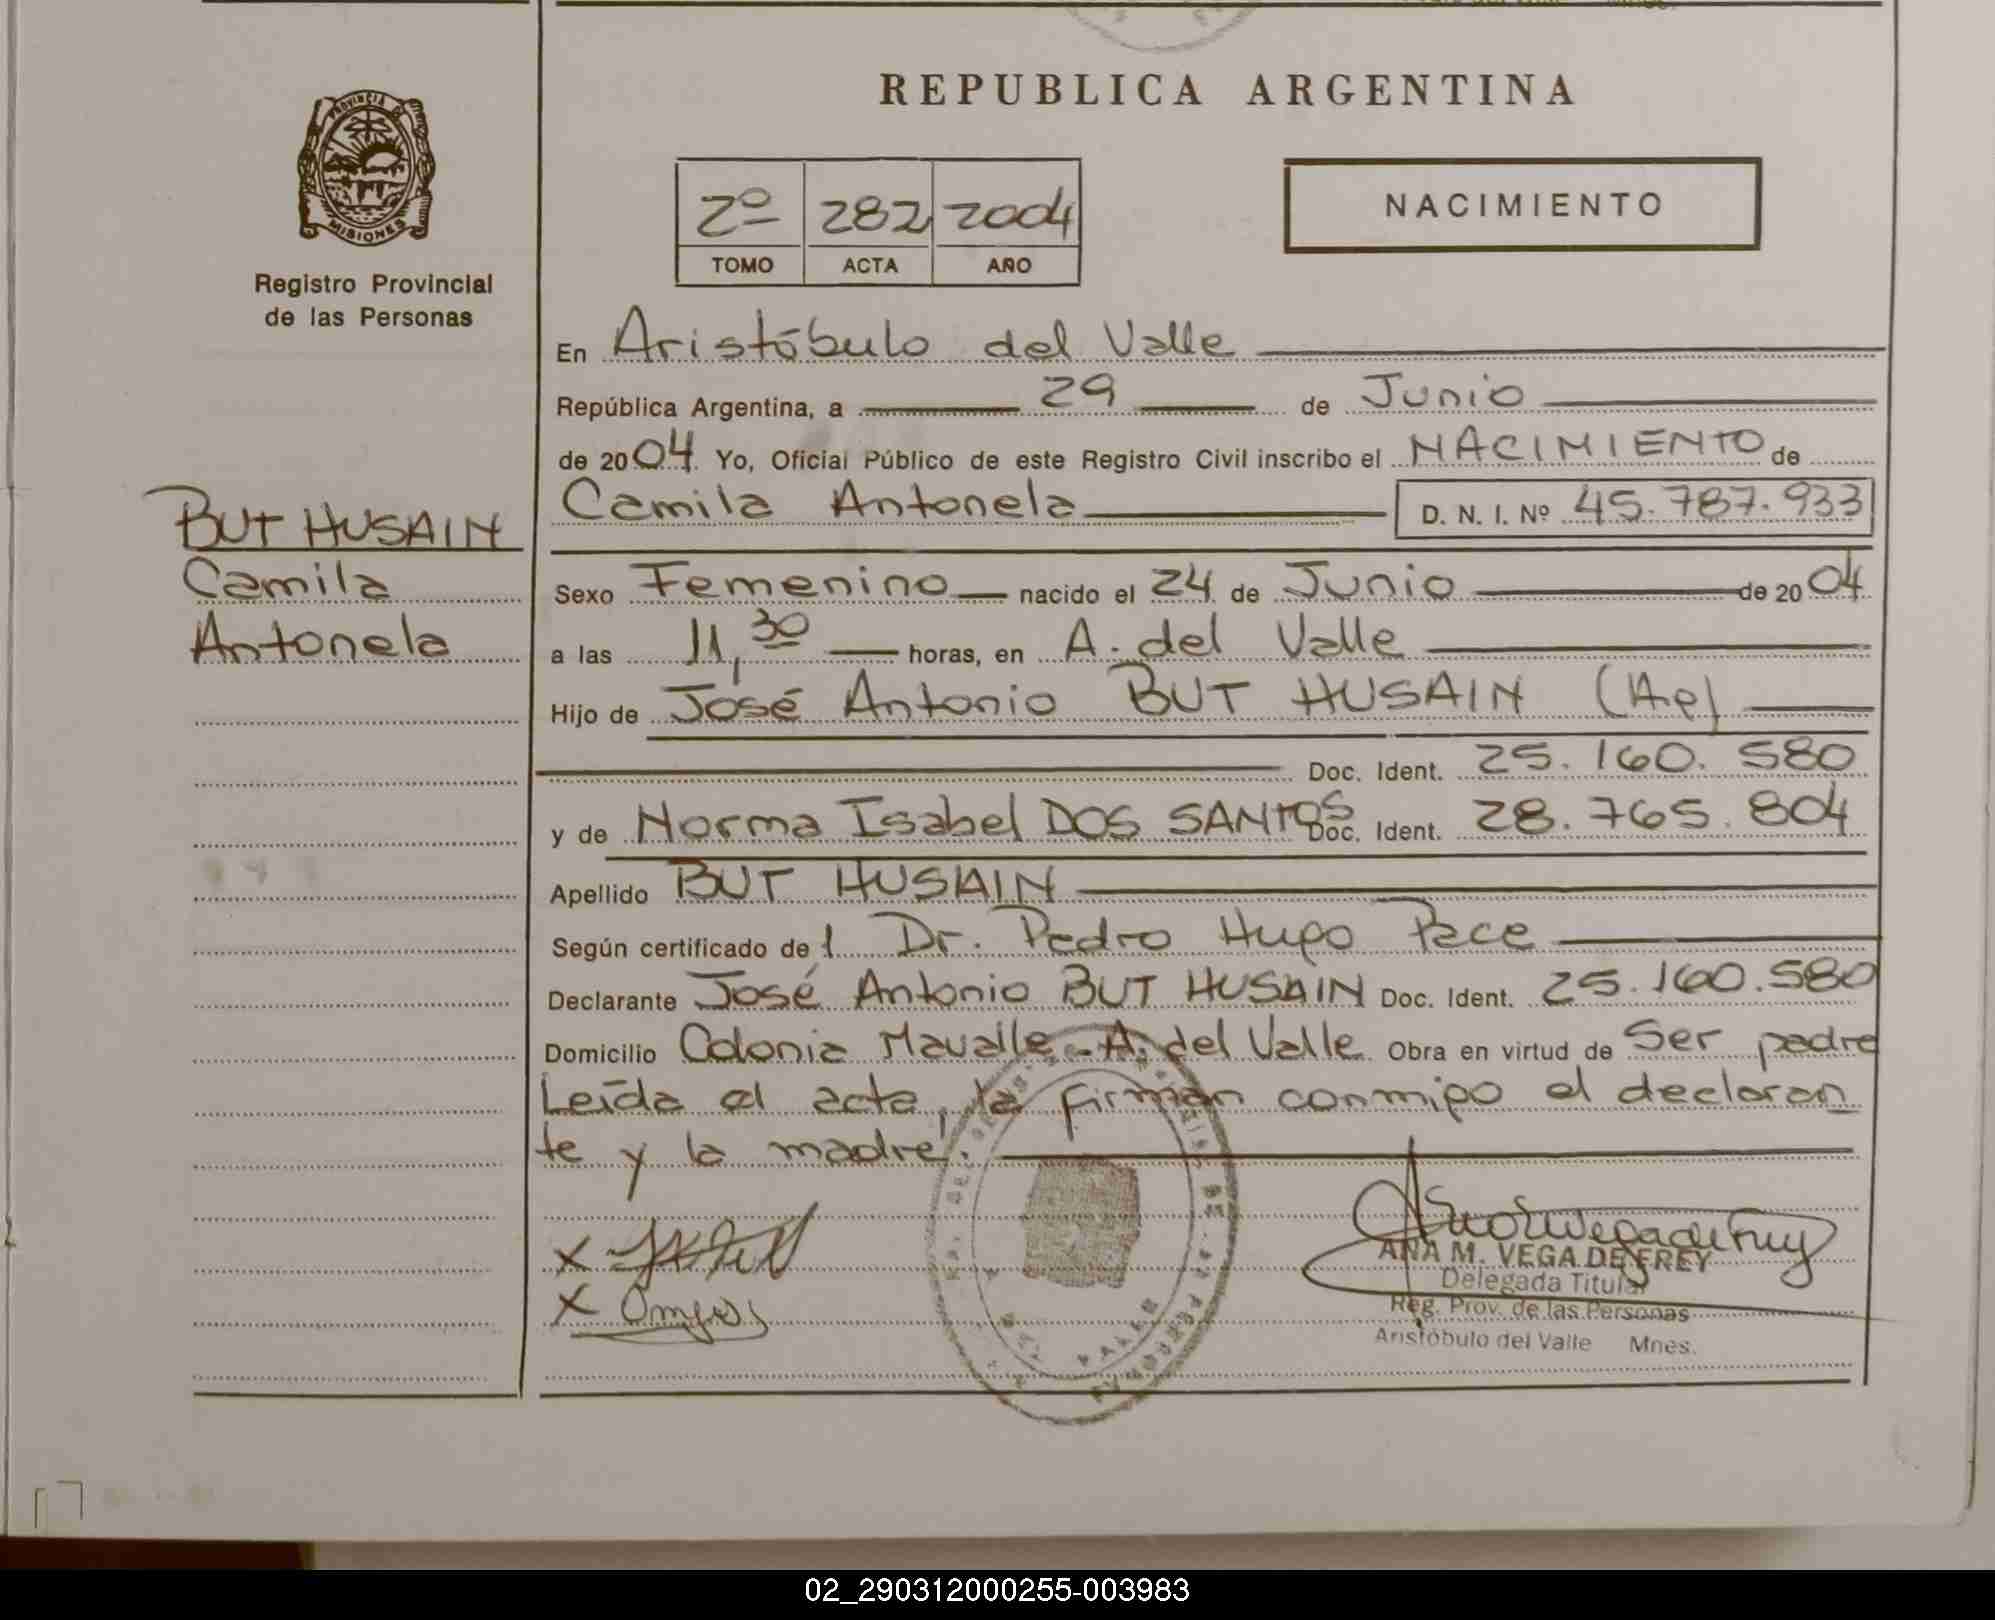 REPUBLICA ARGENTINA
PROVINCIA D
MISIONES
Registro Provincial
de las Personas
2º 282 2004
TOMO ACTA AÑO
NACIMIENTO
En Aristóbulo del Valle
República Argentina, a 29 de Junio
de 2004. Yo, Oficial Público de este Registro Civil inscribo el NACIMIENTO de
Camila Antonela D. N. I. Nº 45.787.933
BUT HUSAIN
Camila
Antonela
Sexo Femenino nacido el 24 de Junio de 2004
a las 11,30 horas, en A. del Valle
Hijo de José Antonio BUT HUSAIN (Ap)
Doc. Ident. 25.160.580
y de Norma Isabel DOS SANTOS Doc. Ident. 28.765.804
Apellido BUT HUSAIN
Según certificado de l Dr. Pedro Hugo Pace
Declarante José Antonio BUT HUSAIN Doc. Ident. 25.160.580
Domicilio Colonia Mavalle - A. del Valle Obra en virtud de Ser padre
Leída el acta, la firman conmigo el declaran
te y la madre.
X
X
ANA M. VEGA DE FREY
Delegada Titular
Reg. Prov. de las Personas
Aristóbulo del Valle Mnes.
02_290312000255-003983